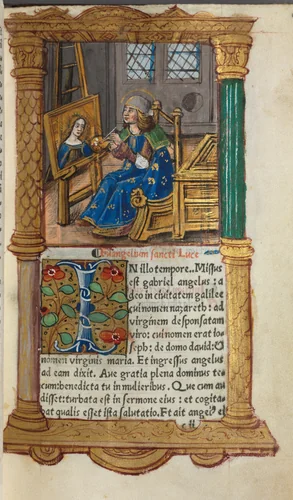 Evangelium sancti Luce
IN illo tempore.. Missus
est gabriel angelus: a
deo in civitatem galilee
cui nomen nazareth: ad
virginem desponsatam
viro: cui nomen erat io
seph: de domo david: &
nomen virginis maria. Et ingressus angelus
ad eam dixit. Ave gratia plena dominus te
cum: benedicta tu in mulieribus. Que cum au
disset: turbata est in sermone eius: et cogita
bat qualis esset ista salutatio. Et ait angelꝰ ei